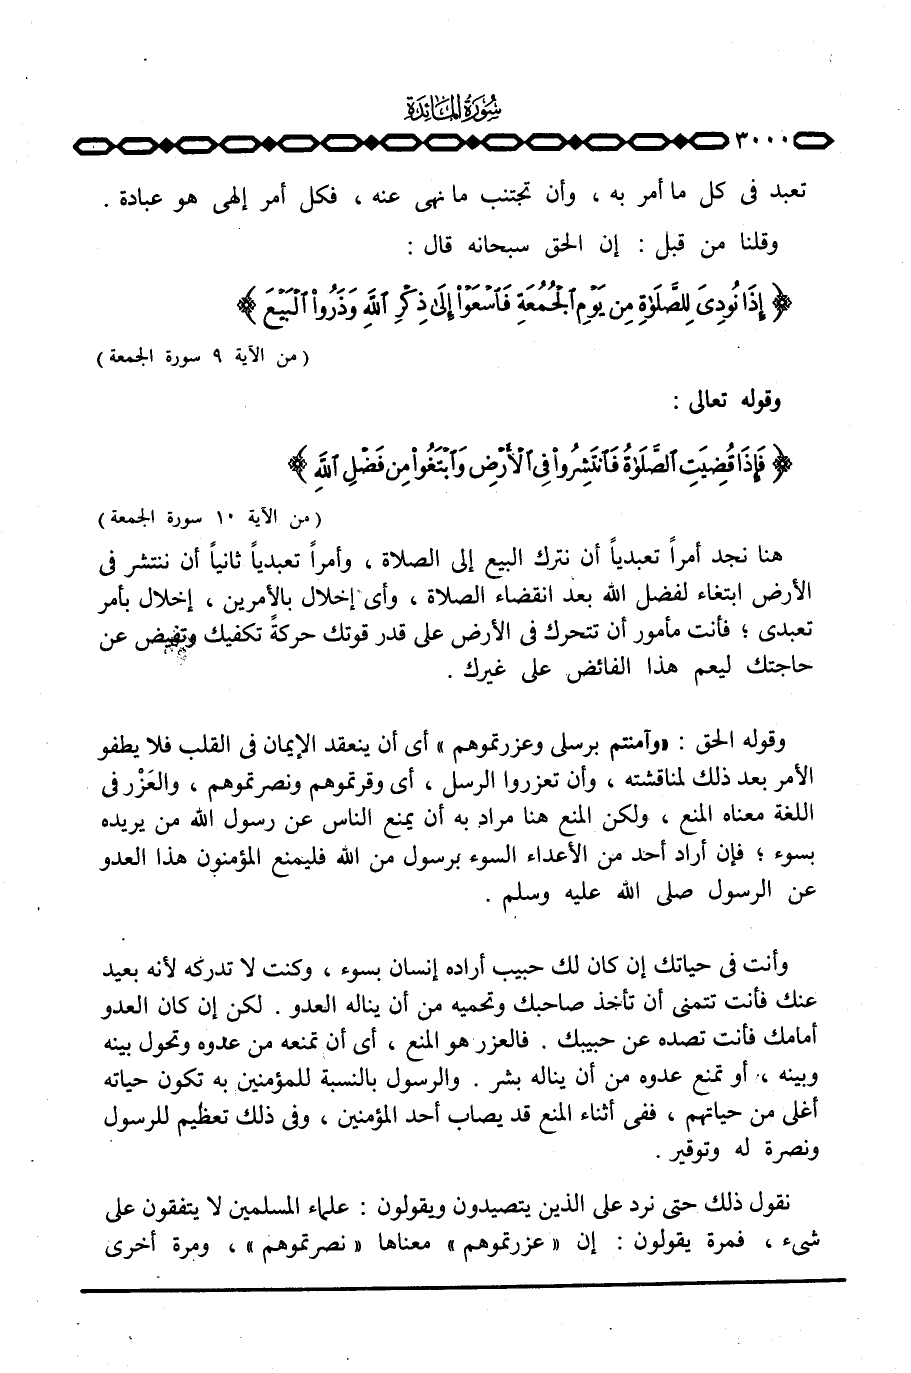 سُورَةُ المَائِدَة
٣٠٠٠
تعبد فى كل ما أمر به ، وأن تجتنب ما نهى عنه ، فكل أمر إلهى هو عبادة .
وقلنا من قبل : إن الحق سبحانه قال :
﴿ إِذَا نُودِىَ لِلصَّلَوٰةِ مِن يَوْمِ ٱلْجُمُعَةِ فَٱسْعَوْا۟ إِلَىٰ ذِكْرِ ٱللَّهِ وَذَرُوا۟ ٱلْبَيْعَ ﴾
( من الآية ٩ سورة الجمعة )
وقوله تعالى :
﴿ فَإِذَا قُضِيَتِ ٱلصَّلَوٰةُ فَٱنتَشِرُوا۟ فِى ٱلْأَرْضِ وَٱبْتَغُوا۟ مِن فَضْلِ ٱللَّهِ ﴾
( من الآية ١٠ سورة الجمعة )
هنا نجد أمراً تعبدياً أن نترك البيع إلى الصلاة ، وأمراً تعبدياً ثانياً أن ننتشر فى
الأرض ابتغاء لفضل الله بعد انقضاء الصلاة ، وأى إخلال بالأمرين ، إخلال بأمر
تعبدى ؛ فأنت مأمور أن تتحرك فى الأرض على قدر قوتك حركةً تكفيك وتفيض عن
حاجتك ليعم هذا الفائض على غيرك .
وقوله الحق : «وآمنتم برسلى وعزرتموهم » أى أن ينعقد الإيمان فى القلب فلا يطفو
الأمر بعد ذلك لمناقشته ، وأن تعزروا الرسل ، أى وقرتموهم ونصرتموهم ، والعَزْر فى
اللغة معناه المنع ، ولكن المنع هنا مراد به أن يمنع الناس عن رسول الله من يريده
بسوء ؛ فإن أراد أحد من الأعداء السوء برسول من الله فليمنع المؤمنون هذا العدو
عن الرسول صلى الله عليه وسلم .
وأنت فى حياتك إن كان لك حبيب أراده إنسان بسوء ، وكنت لا تدركه لأنه بعيد
عنك فأنت تتمنى أن تأخذ صاحبك وتحميه من أن يناله العدو . لكن إن كان العدو
أمامك فأنت تصده عن حبيبك . فالعزر هو المنع ، أى أن تمنعه من عدوه وتحول بينه
وبينه ، أو تمنع عدوه من أن يناله بشر . والرسول بالنسبة للمؤمنين به تكون حياته
أغلى من حياتهم ، ففى أثناء المنع قد يصاب أحد المؤمنين ، وفى ذلك تعظيم للرسول
ونصرة له وتوقير .
نقول ذلك حتى نرد على الذين يتصيدون ويقولون : علماء المسلمين لا يتفقون على
شىء ، فمرة يقولون : إن « عزرتموهم » معناها « نصرتموهم » ، ومرة أخرى